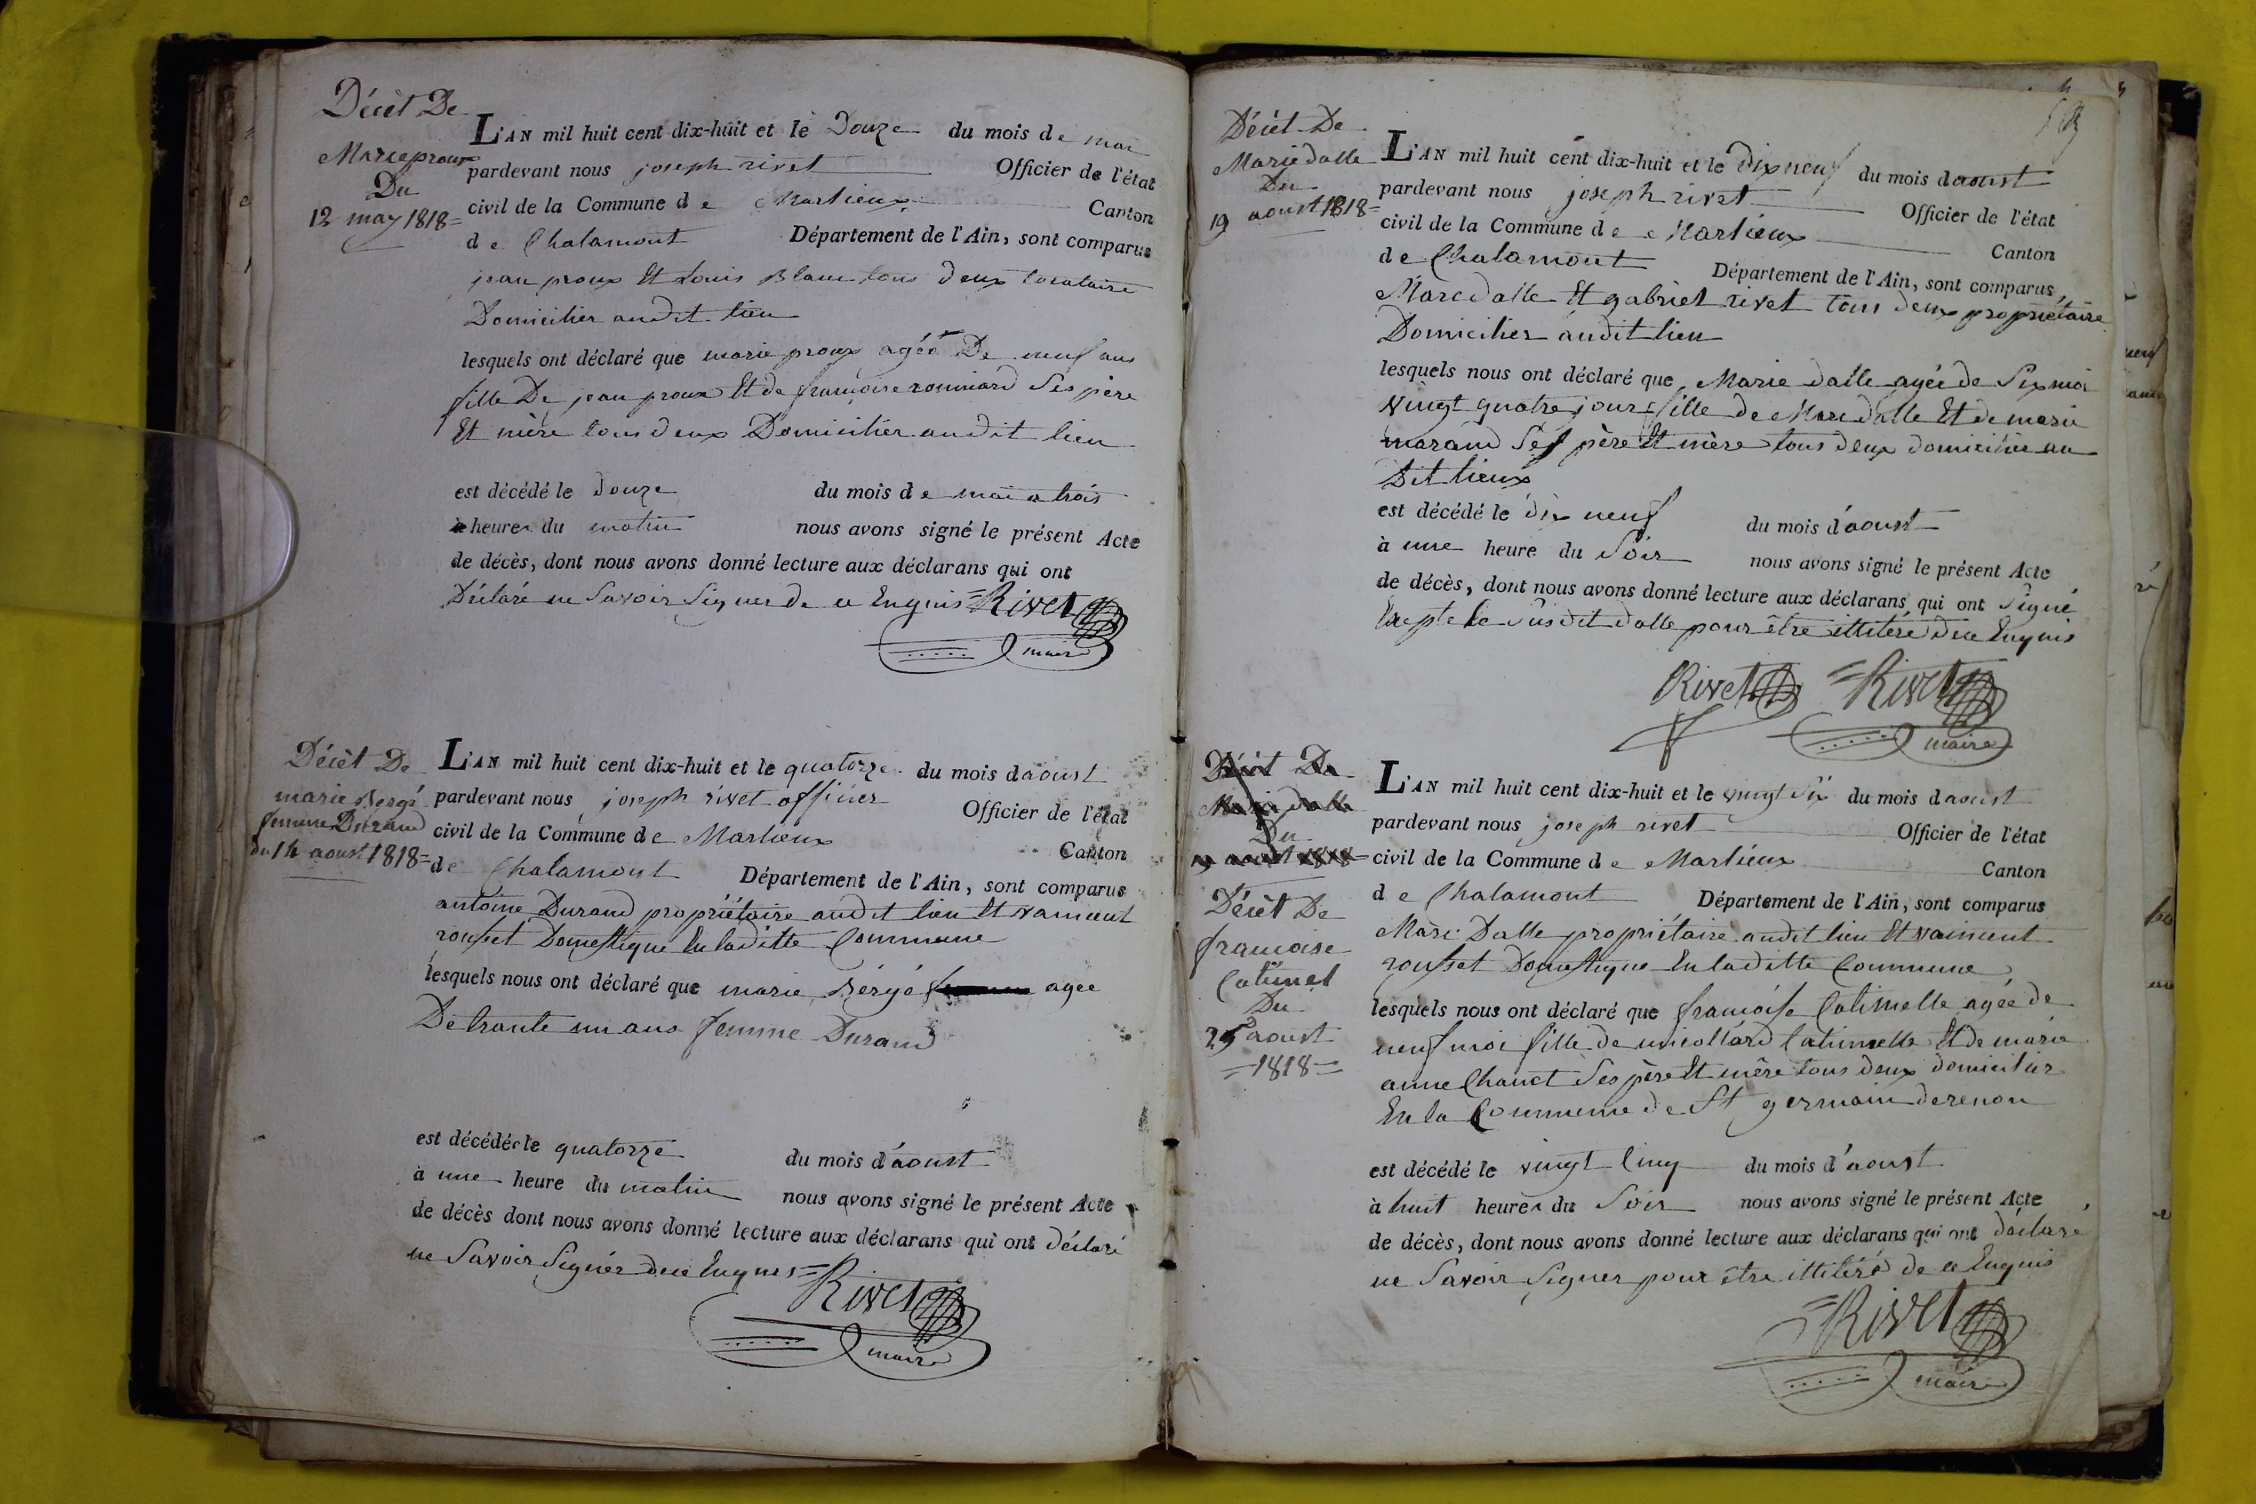 Décèt De
Marie proux
Du
12 may 1818=
L'AN mil huit cent dix-huit et le Douze du mois de mai
pardevant nous joseph rivet Officier de l'état
civil de la Commune de Marlieux Canton
de Chalamont Département de l'Ain, sont comparus
jean proux Et Louis Blanc tous deux locataire
Domicilier audit lieu
lesquels ont déclaré que marie proux agéé De neuf ans
fille De jean proux Et de françoise ses père
Et mère tous deux Domicilier audit lieu
est décédé le douze du mois de mai a trois
à heures du matin nous avons signé le présent Acte
de décès, dont nous avons donné lecture aux déclarans qui ont
Déclaré ne Savoir Signer de ce Enquis =Rivet
maire
Décèt De
marie Bergé
femme Durand
du 14 aoust 1818=
L'AN mil huit cent dix-huit et le quatorze du mois daoust
pardevant nous joseph rivet officier Officier de l'état
civil de la Commune de Marlieux Canton
de Chalamont Département de l'Ain, sont comparus
antoine Durand propriétaire audit lieu Et vaincent
rousset Domestique En laditte Commune
lesquels nous ont déclaré que marie Bérgé agee
De trante un ans femme Durand
est décédée le quatorze du mois d'aoust
à une heure du matin nous avons signé le présent Acte
de décès dont nous avons donné lecture aux déclarans qui ont déclaré
ne Savoir Signér de ce Enques =Rivet
maire
Décèt De
Marie dalle
Du
19 aoust 1818=
L'AN mil huit cent dix-huit et le dix neuf du mois daoust
pardevant nous joseph rivet Officier de l'état
civil de la Commune de Marlieux Canton
de Chalamont Département de l'Ain, sont comparus
Marc dalle Et gabriel rivet tous deux propriétaire
Domicilier audit lieu
lesquels nous ont déclaré que Marie dalle agée de Six moi
vingt quatre jour fille de Marc dalle Et de marie
marand Ses père Et mère tous deux domicilie au
Dit lieux
est décédé le dix neuf du mois d'aoust
à une heure du Soir nous avons signé le présent Acte
de décès, dont nous avons donné lecture aux déclarans qui ont Signé
Excepte le Susdit dalle pour être illiteré de ce Enquis
Rivet =Rivet
maire
Décèt De
Marie dalle
Du
19 aoust 1818=
Décèt De
francoise
Catimel
Du
25 aoust
=1818=
L'AN mil huit cent dix-huit et le vingt Six du mois daoust
pardevant nous joseph rivet Officier de l'état
civil de la Commune de Marlieux Canton
de Chalamont Département de l'Ain, sont comparus
Marc Dalle propriétaire audit lieu Et vaincent
rousset Domestique En laditte Commune
lesquels nous ont déclaré que francoise Catimelle agée de
neuf moi fille de Catimelle Et de marie
anne Chanet Ses père Et mère tous deux domicilier
En la Commune de St germain de renon
est décédé le vingt Cinq du mois d'aoust
à huit heures du Soir nous avons signé le présent Acte
de décès, dont nous avons donné lecture aux déclarans qui ont déclaré
ne Savoir Signer pour être illitéré de ce Enquis
=Rivet
maire